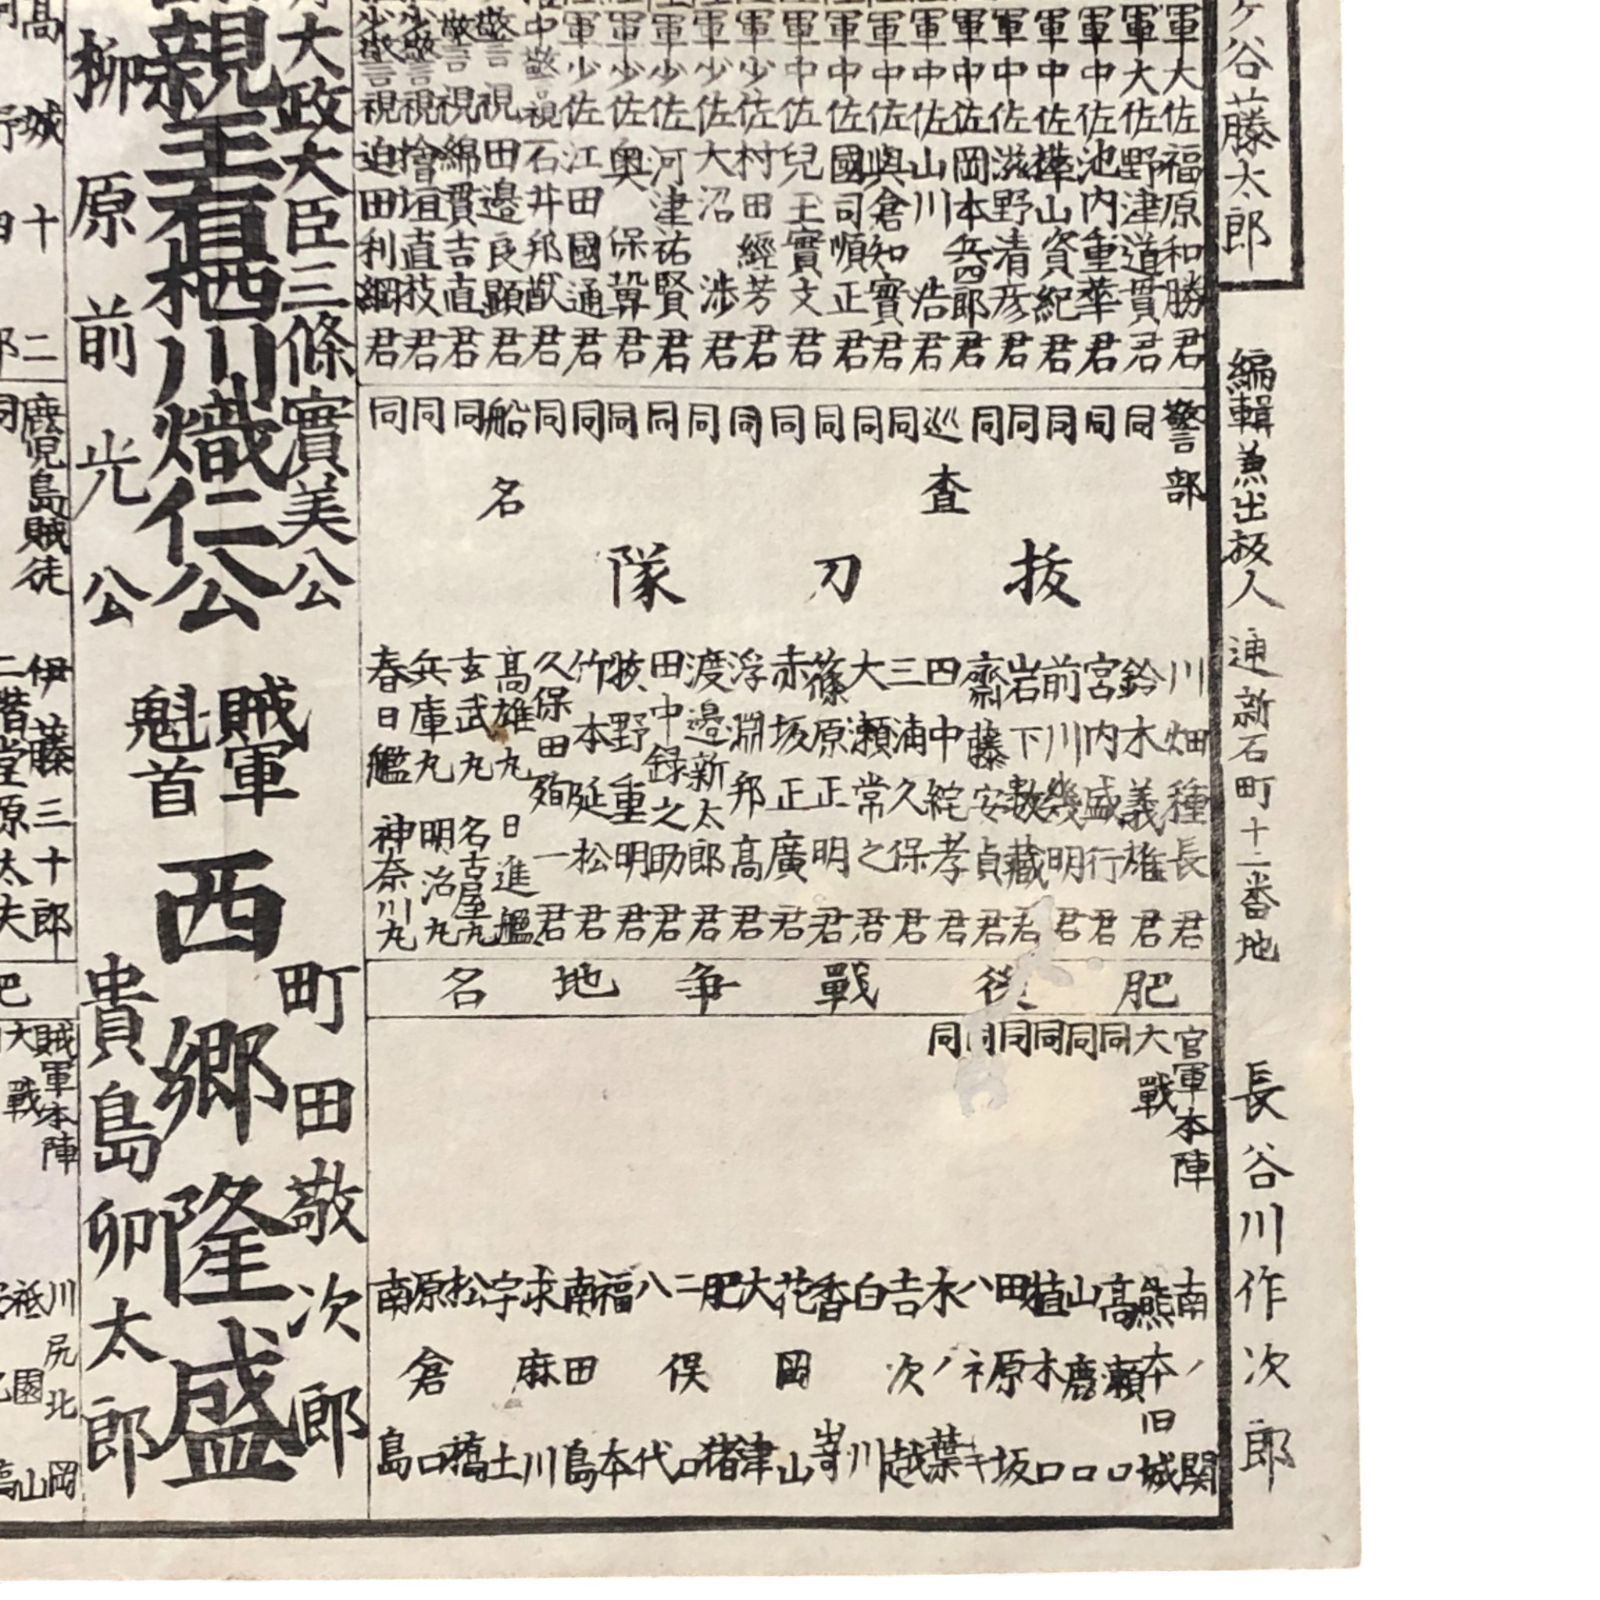 ケ谷藤太郎
編輯兼出板人
通新石町十二番地
長谷川作次郎
軍大佐福原和勝君
軍大佐野津道貫君
軍中佐池内重華君
軍中佐樺山資紀君
軍中佐滋野清彦君
軍中佐岡本兵四郎君
軍中佐山川浩君
軍中佐與倉知實君
軍中佐國司順正君
軍中佐兒玉實文君
軍少佐村田經芳君
軍少佐大沼渉君
軍少佐河津祐賢君
軍少佐奥保鞏君
軍少佐江田國通君
中警視石井邦猷君
警視田邉良顕君
警視綿貫吉直君
少警視檜垣直枝君
少警視迫田利綱君
警部 川畑種長君
同 鈴木義雄君
同 宮内盛行君
同 前川幾明君
同 岩下敎蔵君
同 齋藤安貞君
巡査 四中綻孝君
同 三浦久保君
同 大瀬常之君
同 篠原正明君
同 赤坂正廣君
同 浮淵邦高君
同 渡邉新太郎君
同 田中録之助君
同 牧野重明君
同 竹本延松君
同 久保田殉一君
抜刀隊
船名 高雄丸 日進艦
同 玄武丸 名古屋丸
同 兵庫丸 明治丸
同 春日艦 神奈川丸
肥後戰争地名
官軍本陣 南ノ関
大戰 熊本旧城
同 高瀬口
同 山鹿口
同 植木口
同 田原坂
同 八ネキ
同 木ノ葉
吉次越
白川
香嵜
花岡山
大津
肥猪口
二俣
八代
福本
南田島
求麻川
宇土
松橋
原倉口
南島
大政大臣三條實美公
親王有栖川熾仁公
柳原前光公
賊軍
魁首
西郷隆盛
町田敬次郎
貴島卯太郎
高城十二
鹿児島賊徒
伊藤三十郎
同
二階堂原太夫
肥
賊軍本陣
大戰
川尻北岡
祗園山